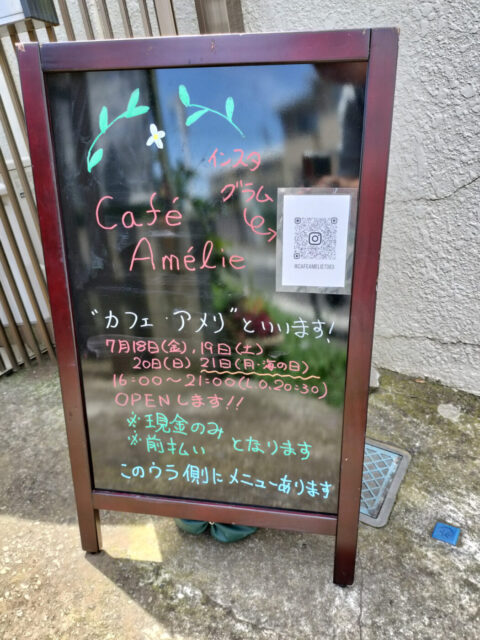 Café
Amélie
インスタ
グラム
@CAFEAMELIE7083
"カフェ・アメリ"といいます!
7月18日(金),19日(土)
20日(日) 21日(月・海の日)
16:00〜21:00(L.O.20:30)
OPENします!!
※現金のみ
※前払い となります
このウラ側にメニューあります